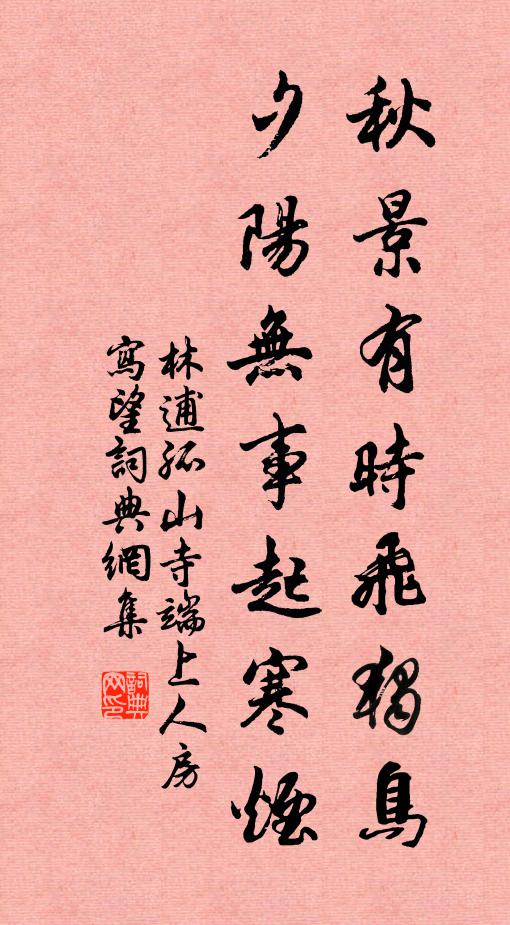 秋景有時飛獨鳥
夕陽無事起寒煙
林逋孤山寺端上人房
寫望詞典網集
詞典網印